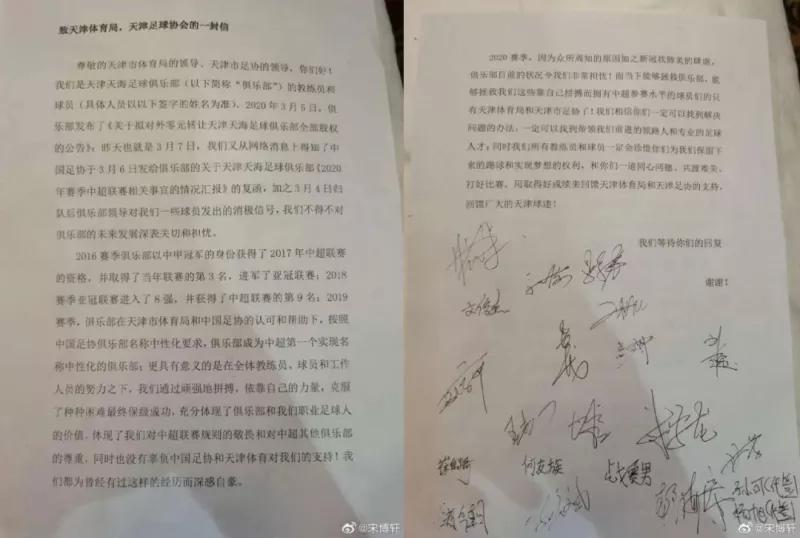 致天津体育局，天津足球协会的一封信
尊敬的天津市体育局的领导、天津市足协的领导，你们好！
我们是天津天海足球俱乐部（以下简称“俱乐部”）的教练员和
球员（具体人员以以下签字的姓名为准）。2020 年 3 月 5 日，俱
乐部发布了《关于拟对外零元转让天津天海足球俱乐部全部股权
的公告》；昨天也就是 3 月 7 日，我们又从网络消息上得知了中
国足协于 3 月 6 日发给俱乐部的关于天津天海足球俱乐部《2020
年赛季中超联赛相关事宜的情况汇报》的复函，加之 3 月 4 日归
队后俱乐部领导对我们一些球员发出的消极信号，我们不得不对
俱乐部的未来发展深表关切和担忧。
2016 赛季俱乐部以中甲冠军的身份获得了 2017 年中超联赛
的资格，并取得了当年联赛的第 3 名，进军了亚冠联赛；2018
赛季亚冠联赛进入了 8 强，并获得了中超联赛的第 9 名；2019
赛季，俱乐部在天津市体育局和中国足协的认可和帮助下，按照
中国足协俱乐部名称中性化要求，俱乐部成为中超第一个实现名
称中性化的俱乐部；更具有意义的是在全体教练员、球员和工作
人员的努力之下，我们通过顽强地拼搏，依靠自己的力量，克服
了种种困难最终保级成功，充分体现了俱乐部和我们职业足球人
的价值，体现了我们对中超联赛规则的敬畏和对中超其他俱乐部
的尊重，同时也没有辜负中国足协和天津体育对我们的支持！我
们都为曾经有过这样的经历而深感自豪。
@宋博轩
2020 赛季，因为众所周知的原因加之新冠状肺炎的肆虐，
俱乐部目前的状况令我们非常担忧！而当下能够拯救俱乐部、能
够拯救我们这些靠自己拼搏而拥有中超参赛水平的球员们的只
有天津体育局和天津市足协了！我们相信你们一定可以找到解决
问题的办法，一定可以找到带领我们前进的领路人和专业的足球
人才；同时我们所有教练员和球员一定会珍惜你们为我们保留下
来的踢球和实现梦想的权利，和你们一道同心同德、共渡难关、
打好比赛，用取得好成绩来回馈天津体育局和天津足协的支持，
回馈广大的天津球迷！
我们等待你们的回复
谢谢！
何友族
钱宇淼
@宋博轩